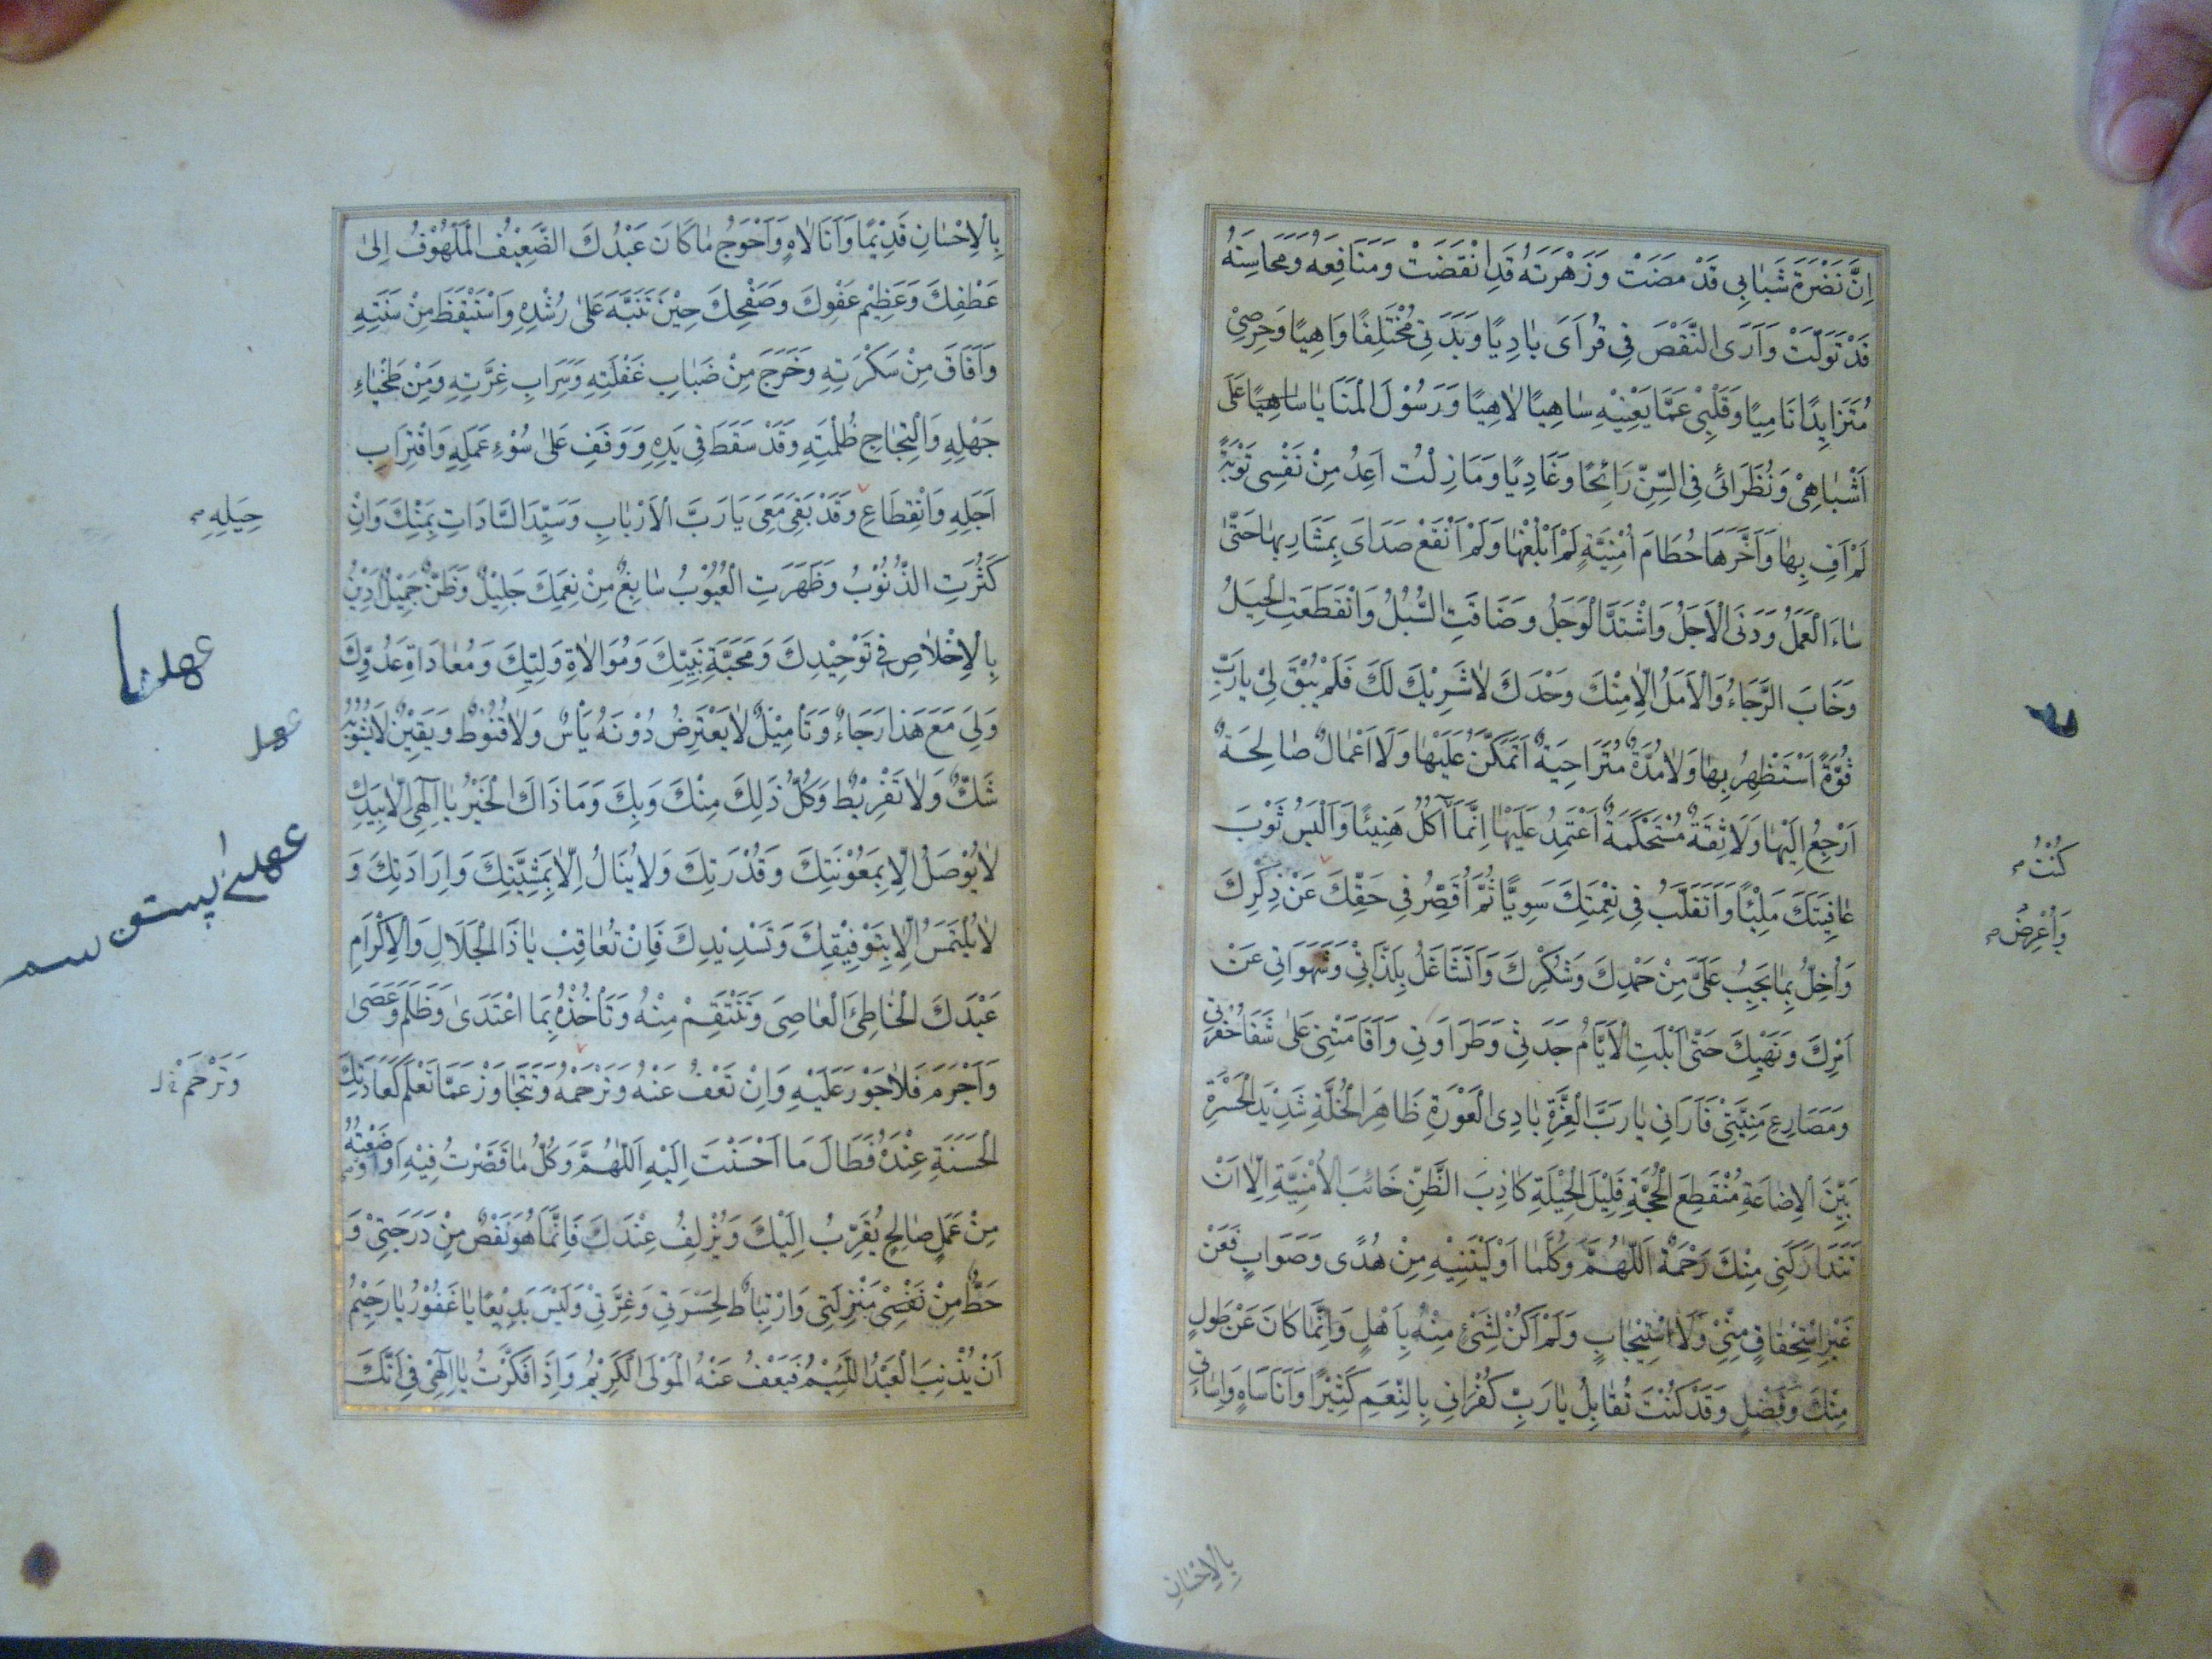 اِنَّ نَضْرَةَ شَبَابِى قَدْ مَضَتْ وَزَهْرَتَهُ قَدِ انْقَضَتْ وَمَنَافِعَهُ وَمَحَاسِنَهُ
قَدْ تَوَلَّتْ وَاَرَى النَّقْصَ فِى قُرَاَىَ بَادِيًا وَبَدَنِى مُخْتَلِفًا وَاهِيًا وَحِرْصِىْ
مُتَزَايِدًا نَامِيًا وَقَلْبِىْ عَمَّا يَعْنِيْهِ سَاهِيًا لَاهِيًا وَرَسُوْلَ الْمَنَايَا سَاهِيًا عَلَى
اَشْبَاهِىْ وَنُظَرَائِىْ فِى السِّنِّ رَائِحًا وَغَادِيًا وَمَا زِلْتُ اَعِدُ مِنْ نَفْسِى تَوْبَةً
لَمْ اَفِ بِهَا وَاَخَّرَهَا حُطَامَ اُمْنِيَّةٍ لَمْ اَبْلُغْهَا وَلَمْ اَنْقَعْ صَدَاىَ بِمَشَارِبِهَا حَتّٰى
سَاءَ الْعَمَلُ وَدَنَى الْاَجَلُ وَاشْتَدَّ الْوَجَلُ وَضَاقَتِ السُّبُلُ وَانْقَطَعَتِ الْحِيَلُ
وَخَابَ الرَّجَاءُ وَالْاَمَلُ اِلَّا مِنْكَ وَحْدَكَ لَا شَرِيْكَ لَكَ فَلَمْ يَبْقَ لِىْ يَارَبِّ
قُوَّةٌ اَسْتَظْهِرُ بِهَا وَلَا مُدَّةٌ مُتَرَاخِيَةٌ اَتَمَكَّنُ عَلَيْهَا وَلَا اَعْمَالٌ صَالِحَةٌ
اَرْجِعُ اِلَيْهَا وَلَا ثِقَةٌ مُسْتَحْكَمَةٌ اَعْتَمِدُ عَلَيْهَا اِنَّمَا آكُلُ هَنِيئًا وَاَلْبَسُ ثَوْبَ
كُنْتُ
عَافِيَتِكَ مَلِيْئًا وَاَتَقَلَّبُ فِى نِعْمَتِكَ سَوِيًّا ثُمَّ اُقَصِّرُ فِى حَقِّكَ عَنْ ذِكْرِكَ
وَاُعْرِضُ
وَاُخِلُّ بِمَا يَجِبُ عَلَىَّ مِنْ حَمْدِكَ وَشُكْرِكَ وَاَتَشَاغَلُ بِلَذَّاتِىْ وَشَهَوَاتِى عَنْ
اَمْرِكَ وَنَهْيِكَ حَتّٰى اَبْلَتِ الْاَيَّامُ جِدَّتِىْ وَطَرَاوَتِى وَاَقَامَتْنِى عَلٰى شَفَا حُفْرَتِى
وَمَصَارِعِ مَنِيَّتِىْ فَاَرَانِى يَارَبَّ الْعِزَّةِ بَادِىَ الْعَوْرَةِ ظَاهِرَ الْخُلَّةِ شَدِيْدَ الْحَسْرَةِ
بَيِّنَ الْاِضَاعَةِ مُنْقَطِعَ الْحُجَّةِ قَلِيْلَ الْحِيْلَةِ كَاذِبَ الظَّنِّ خَائِبَ الْاُمْنِيَّةِ اِلَّا اَنْ
تَتَدَارَكَنِى مِنْكَ رَحْمَةٌ اَللّٰهُمَّ وَكُلَّمَا اَوْلَيْتَنِيْهِ مِنْ هُدًى وَصَوَابٍ فَعَنْ
غَيْرِ اسْتِحْقَاقٍ مِنِّىْ وَلَا اسْتِيْجَابٍ وَلَمْ اَكُنْ لِشَىْءٍ مِنْهُ بِاَهْلٍ وَاِنَّمَا كَانَ عَنْ طَوْلٍ
مِنْكَ وَفَضْلٍ وَقَدْ كُنْتَ تُقَابِلُ يَارَبِّ كُفْرَانِى بِالنِّعَمِ كَثِيْرًا وَاَنَا سَاهٍ وَاِسَاءَتِى
بِالْاِحْسَانِ
بِالْاِحْسَانِ قَدِيْمًا وَاَنَا لَاهٍ وَاَحْوَجُ مَا كَانَ عَبْدُكَ الضَّعِيْفُ الْمَلْهُوْفُ اِلٰى
عَطْفِكَ وَعَظِيْمِ عَفْوِكَ وَصَفْحِكَ حِيْنَ تَنَبَّهَ عَلٰى رُشْدِهِ وَاسْتَيْقَظَ مِنْ سَنَتِهِ
وَاَفَاقَ مِنْ سَكْرَتِهِ وَخَرَجَ مِنْ ضَبَابِ غَفْلَتِهِ وَسَرَابِ غِرَّتِهِ وَمِنْ طَخْيَاءِ
جَهْلِهِ وَالْتِجَاجِ ظُلْمَتِهِ وَقَدْ سَقَطَ فِى يَدِهِ وَوَقَفَ عَلٰى سُوْءِ عَمَلِهِ وَاقْتِرَابِ
اَجَلِهِ وَانْقِطَاعِ وَقَدْ بَقِىَ مَعِى يَارَبَّ الْاَرْبَابِ وَسَيِّدَ السَّادَاتِ بِمَنِّكَ وَاِنْ
حِيَلِهِ
كَثُرَتِ الذُّنُوْبُ وَظَهَرَتِ الْعُيُوْبُ سَابِغٌ مِنْ نِعَمِكَ جَلِيْلٌ وَظَنٌّ جَمِيْلٌ اَدِيْنُ
بِالْاِخْلَاصِ فِى تَوْحِيْدِكَ وَمَحَبَّةِ نَبِيِّكَ وَمُوَالَاةِ وَلِيِّكَ وَمُعَادَاةِ عَدُوِّكَ
وَلِىَ مَعَ هَذَا رَجَاءٌ وَتَاْمِيْلٌ لَا يَعْتَرِضُ دُوْنَهُ يَأْسٌ وَلَا قُنُوْطٌ وَيَقِيْنٌ لَا يَشُوْبُهُ
شَكٌّ وَلَا تَفْرِيْطٌ وَكُلُّ ذَلِكَ مِنْكَ وَبِكَ وَمَا ذَاكَ الْخَيْرُ يَا اِلٰهِى اِلَّا بِيَدِكَ
لَا يُوْصَلُ اِلَّا بِمَعُوْنَتِكَ وَقُدْرَتِكَ وَلَا يُنَالُ اِلَّا بِمَشِيَّتِكَ وَاِرَادَتِكَ وَ
لَا يُلْتَمَسُ اِلَّا بِتَوْفِيْقِكَ وَتَسْدِيْدِكَ فَاِنْ تُعَاقِبْ يَا ذَا الْجَلَالِ وَالْاِكْرَامِ
عَبْدَكَ الْخَاطِئَ الْعَاصِىَ وَتَنْتَقِمْ مِنْهُ وَتَاْخُذْهُ بِمَا اعْتَدَى وَظَلَمَ وَعَصَى
وَاَجْرَمَ فَلَا جَوْرَ عَلَيْهِ وَاِنْ تَعْفُ عَنْهُ وَتَرْحَمْهُ وَتَتَجَاوَزْ عَمَّا تَعْلَمُ كَعَادَتِكَ
وَتَرْحَمْ
الْحَسَنَةِ عِنْدَهُ فَطَالَ مَا اَحْسَنْتَ اِلَيْهِ اَللّٰهُمَّ وَكُلُّ مَا قَصَّرْتُ فِيْهِ اَوْ اَضَعْتُهُ
مِنْ عَمَلٍ صَالِحٍ يُقَرِّبُ اِلَيْكَ وَيُزْلِفُ عِنْدَكَ فَاِنَّمَا هُوَ نَقْصٌ مِنْ دَرَجَتِىْ وَ
حَطٌّ مِنْ نَفْسِىْ مَنْزِلَتِى وَارْتِبَاطٌ لِحَسْرَتِى وَغِرَّتِىْ وَلَيْسَ بَدِيْعًا يَا غَفُوْرُ يَا رَحِيْمُ
اَنْ يُذْنِبَ الْعَبْدُ اللَّئِيْمُ فَيَعْفُ عَنْهُ الْمَوْلَى الْكَرِيْمُ وَاِذَا فَكَّرْتُ يَا اِلٰهِىْ فِى اَنَّكَ